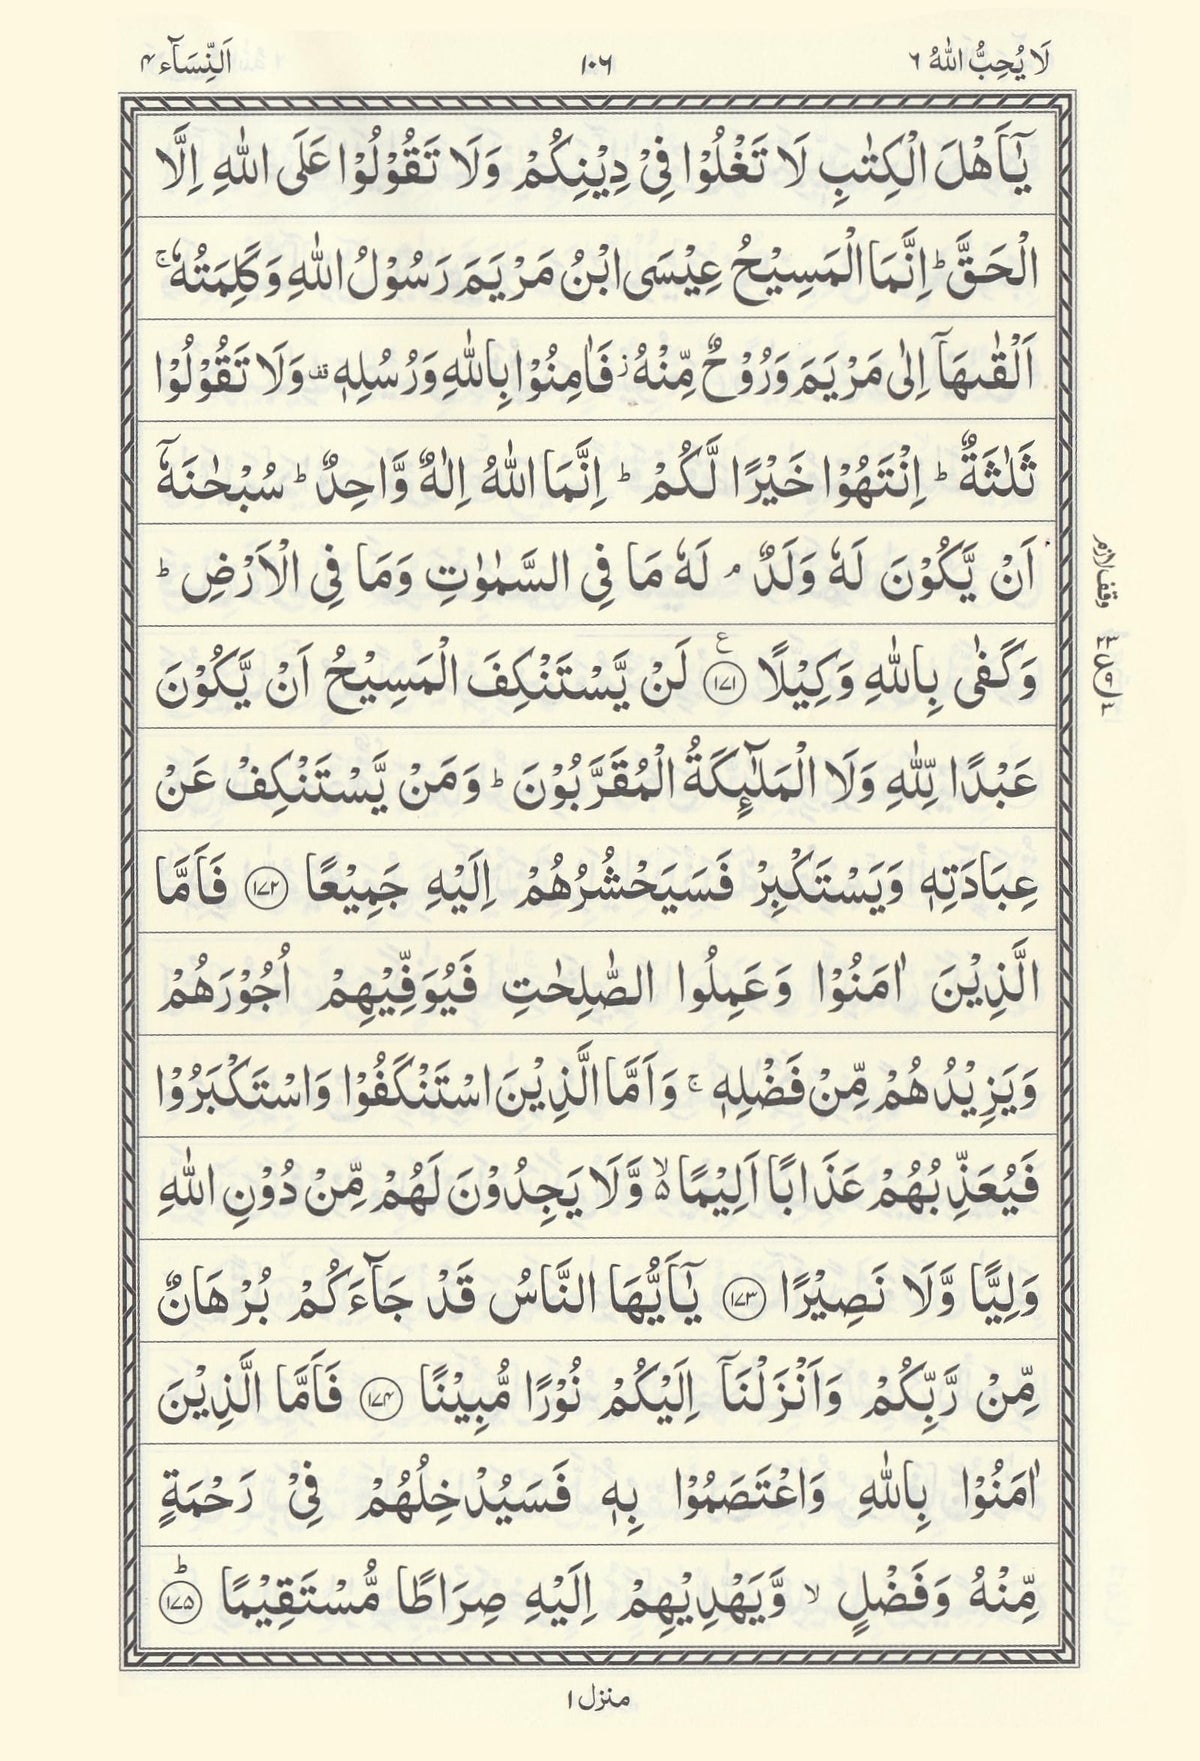 لَا يُحِبُّ اللّٰهُ ٦
١٠٦
اَلنِّسَآء ٤
يٰۤاَهْلَ الْكِتٰبِ لَا تَغْلُوْا فِيْ دِيْنِكُمْ وَلَا تَقُوْلُوْا عَلَى اللّٰهِ اِلَّا
الْحَقَّ ؕ اِنَّمَا الْمَسِيْحُ عِيْسَى ابْنُ مَرْيَمَ رَسُوْلُ اللّٰهِ وَكَلِمَتُهٗ ۚ
اَلْقٰىهَاۤ اِلٰى مَرْيَمَ وَرُوْحٌ مِّنْهُ ؗ فَاٰمِنُوْا بِاللّٰهِ وَرُسُلِهٖ ۫ وَلَا تَقُوْلُوْا
ثَلٰثَةٌ ؕ اِنْتَهُوْا خَيْرًا لَّكُمْ ؕ اِنَّمَا اللّٰهُ اِلٰهٌ وَّاحِدٌ ؕ سُبْحٰنَهٗۤ
اَنْ يَّكُوْنَ لَهٗ وَلَدٌ ۘ لَهٗ مَا فِى السَّمٰوٰتِ وَمَا فِى الْاَرْضِ ؕ
وقف لازم
وَكَفٰى بِاللّٰهِ وَكِيْلًا ﴿١٧١﴾ لَنْ يَّسْتَنْكِفَ الْمَسِيْحُ اَنْ يَّكُوْنَ
عَبْدًا لِّلّٰهِ وَلَا الْمَلٰٓئِكَةُ الْمُقَرَّبُوْنَ ؕ وَمَنْ يَّسْتَنْكِفْ عَنْ
عِبَادَتِهٖ وَيَسْتَكْبِرْ فَسَيَحْشُرُهُمْ اِلَيْهِ جَمِيْعًا ﴿١٧٢﴾ فَاَمَّا
الَّذِيْنَ اٰمَنُوْا وَعَمِلُوا الصّٰلِحٰتِ فَيُوَفِّيْهِمْ اُجُوْرَهُمْ
وَيَزِيْدُهُمْ مِّنْ فَضْلِهٖ ۚ وَاَمَّا الَّذِيْنَ اسْتَنْكَفُوْا وَاسْتَكْبَرُوْا
فَيُعَذِّبُهُمْ عَذَابًا اَلِيْمًا ۙ۬ وَّلَا يَجِدُوْنَ لَهُمْ مِّنْ دُوْنِ اللّٰهِ
وَلِيًّا وَّلَا نَصِيْرًا ﴿١٧٣﴾ يٰۤاَيُّهَا النَّاسُ قَدْ جَآءَكُمْ بُرْهَانٌ
مِّنْ رَّبِّكُمْ وَاَنْزَلْنَاۤ اِلَيْكُمْ نُوْرًا مُّبِيْنًا ﴿١٧٤﴾ فَاَمَّا الَّذِيْنَ
اٰمَنُوْا بِاللّٰهِ وَاعْتَصَمُوْا بِهٖ فَسَيُدْخِلُهُمْ فِيْ رَحْمَةٍ
مِّنْهُ وَفَضْلٍ ۙ وَّيَهْدِيْهِمْ اِلَيْهِ صِرَاطًا مُّسْتَقِيْمًا ﴿١٧٥﴾ؕ
منزل ١